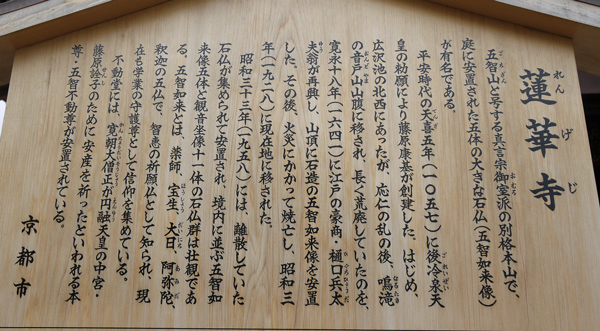 蓮華寺
れんげじ
五智山と号する真言宗御室派の別格本山で、
庭に安置された五体の大きな石仏(五智如来像)
が有名である。
平安時代の天喜五年(一〇五七)に後冷泉天
皇の勅願により藤原康基が創建した。はじめ、
広沢池の北西にあったが、応仁の乱の後、鳴滝
の音戸山山腹に移され、長く荒廃していたのを、
寛永十八年(一六四一)に江戸の豪商、樋口兵太
夫翁が再興し、山頂に石造の五智如来像を安置
した。その後、火災にかかって焼亡し、昭和三
年(一九二八)に現在地に移された。
昭和三十三年(一九五八)には、離散していた
石仏が集められて安置され、境内に並ぶ五智如
来像五体と観音坐像十一体の石仏群は壮観であ
る。五智如来とは、薬師、宝生、大日、阿弥陀、
釈迦の五仏で、智恵の祈願仏として知られ、現
在も学業の守護尊として信仰を集めている。
不動堂には、寛朝大僧正が円融天皇の中宮・
藤原詮子のために安産を祈ったといわれる本
尊・五智不動尊が安置されている。
京都市